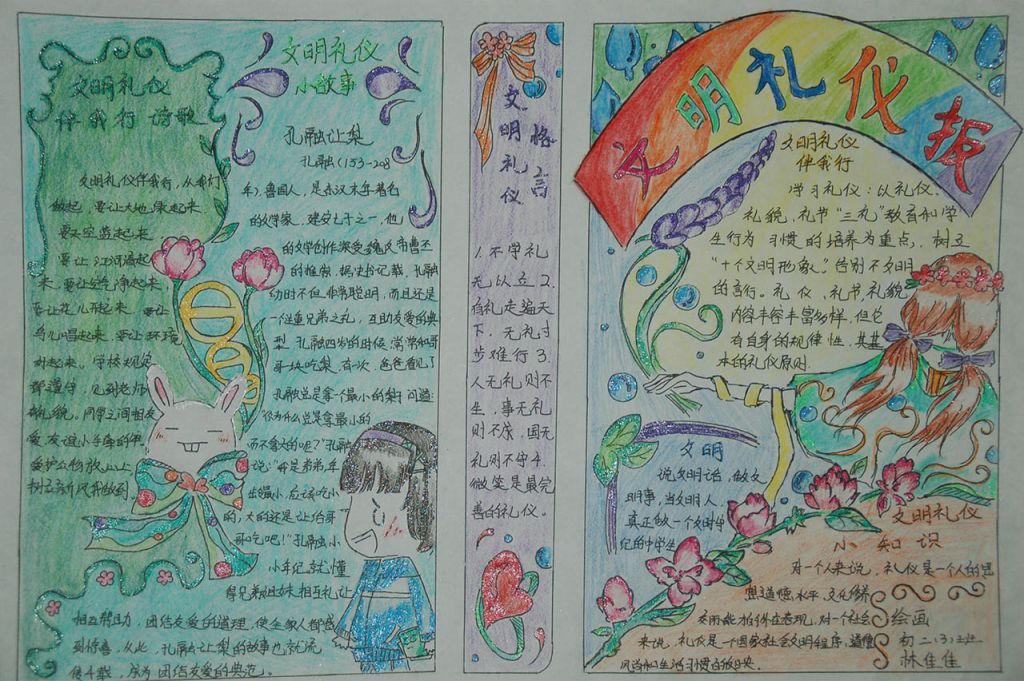 文明礼仪
伴我行 诗歌
文明礼仪伴我行，从我们
做起 要让大地绿起来
要天空蓝起来
要让江河清起
来，要让空气净起来，
要让花儿开起来 要让
鸟儿唱起来 要让环境
好起来。学校规定
都遵守，见到老师
有礼貌。同学之间相友
爱，友谊
文明礼仪
小故事
孔融让梨
孔融（153-208
年）鲁国人，是东汉末年著名
的文学家，建安七子之一，他
的文学创作深受魏文帝曹丕
的推崇，据史书记载，孔融
幼时不但非常聪明，而且还是
一个注重兄弟之礼，互助友爱的典
型。孔融四岁的时候，常常和哥
哥一块吃梨，有次，爸爸看见了
孔融总是拿个最小的梨子问道
你为什么总是拿最小的
而不拿大的呢？"孔融
说："我是弟弟，年
龄最小，应该吃小
的，大的还是让给哥
哥吃吧！"孔融小
小年纪就懂
得兄弟姐妹相互礼让
相互帮助，团结友爱的道理，使全家人都感
到惊喜，从此，孔融让梨的故事也就流
传千载，成为团结友爱的典范。
文明礼仪
格言
1.不学礼
无以立 2.
有礼走遍天
下，无礼寸
步难行 3.
人无礼则不
生，事无礼
则不成，国无
礼则不守 4.
微笑是最完
善的礼仪。
文明礼仪报
文明礼仪
伴我行
学习礼仪：以礼仪、
礼貌，礼节"三礼"教育和学
生行为 习惯 的培养为重点，树立
"十个文明形象"告别不文明
的言行。礼仪、礼节，礼貌
内容丰富多样，但它
有自身的规律性，其基
本的礼仪原则.
文明
说文明话，做文
明事，当文明人
真正做一个文明世
纪的中学生
文明礼仪
小 知 识
对一个人来说，礼仪是一个人的思
想道德水平，文化修养
交际能力的外在表现，对一个社会
来说，礼仪是一个国家社会文明程序，道德
风尚和生活习惯在反映.
绘画
初二（3）班
林佳佳